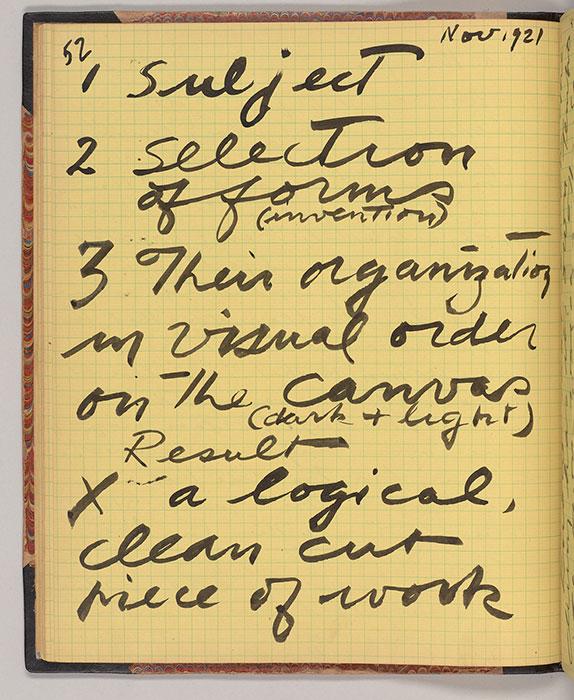 52
Nov. 1921
1 Subject
2 Selection
of forms
(invention)
3 Their organization
in visual order
on the canvas
(dark + light)
Result
X a logical,
clean cut
piece of work